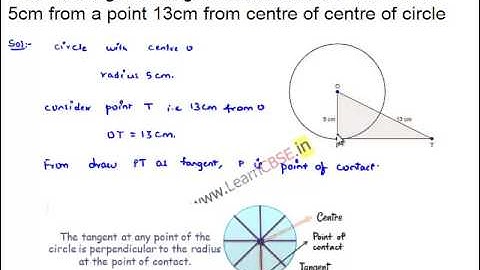 5cm from a point 13cm from centre of centre of circle
Sol:- circle with centre O
radius 5 cm.
consider point T i.e 13cm from O
OT = 13 cm.
From draw PT as tangent, P is point of contact.
O
5 cm
13 cm
T
www.LearnCBSE.in
The tangent at any point of the
circle is perpendicular to the radius
at the point of contact.
Centre
Point of
contact
Tangent